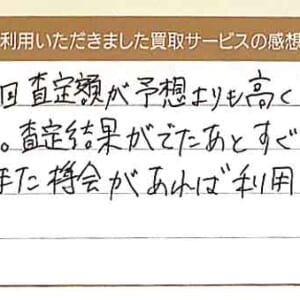 利用いただきました買取サービスの感想
回査定額が予想よりも高く
。査定結果がでたあとすぐ
また機会があれば利用